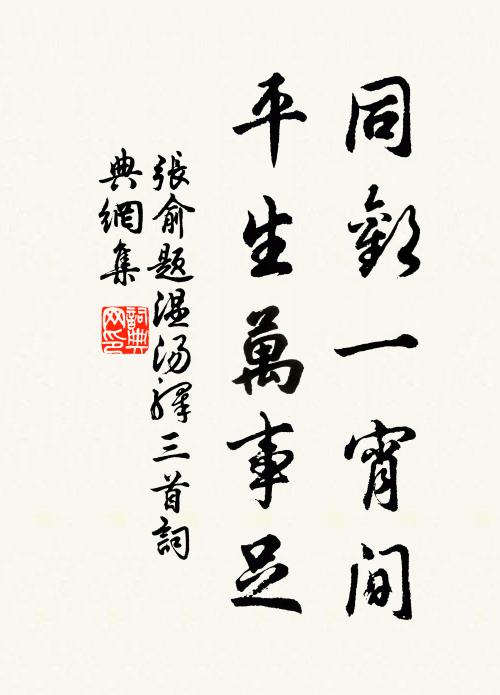 同歡一宵間
平生萬事足
張俞题温汤驛三首詞
典網集
詞典网印